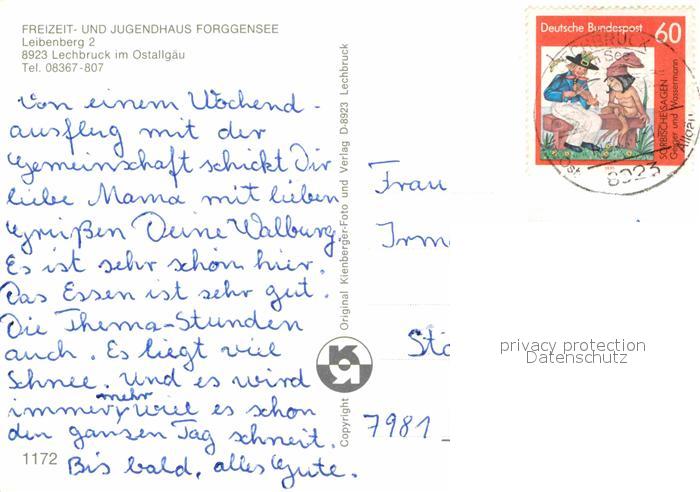 FREIZEIT- UND JUGENDHAUS FORGGENSEE
Leibenberg 2
8923 Lechbruck im Ostallgäu
Tel. 08367-807
Von einem Wochend-
ausflug mit der
Gemeinschaft schickt Dir
liebe Mama mit lieben
Grüßen Deine Walburg.
Es ist sehr schön hier.
Das Essen ist sehr gut.
Die Thema-Stunden
auch. Es liegt viel
Schnee. Und es wird
immer mehr weil es schon
den ganzen Tag schneit.
1172
Bis bald, alles Gute.
Copyright
Original Kienberger-Foto und Verlag D-8923 Lechbruck
Deutsche Bundespost 60
SORBISCHE SAGEN
Geiger und Wassermann
LECHBRUCK
8923
Frau
Irm
Stö
7981
privacy protection
Datenschutz